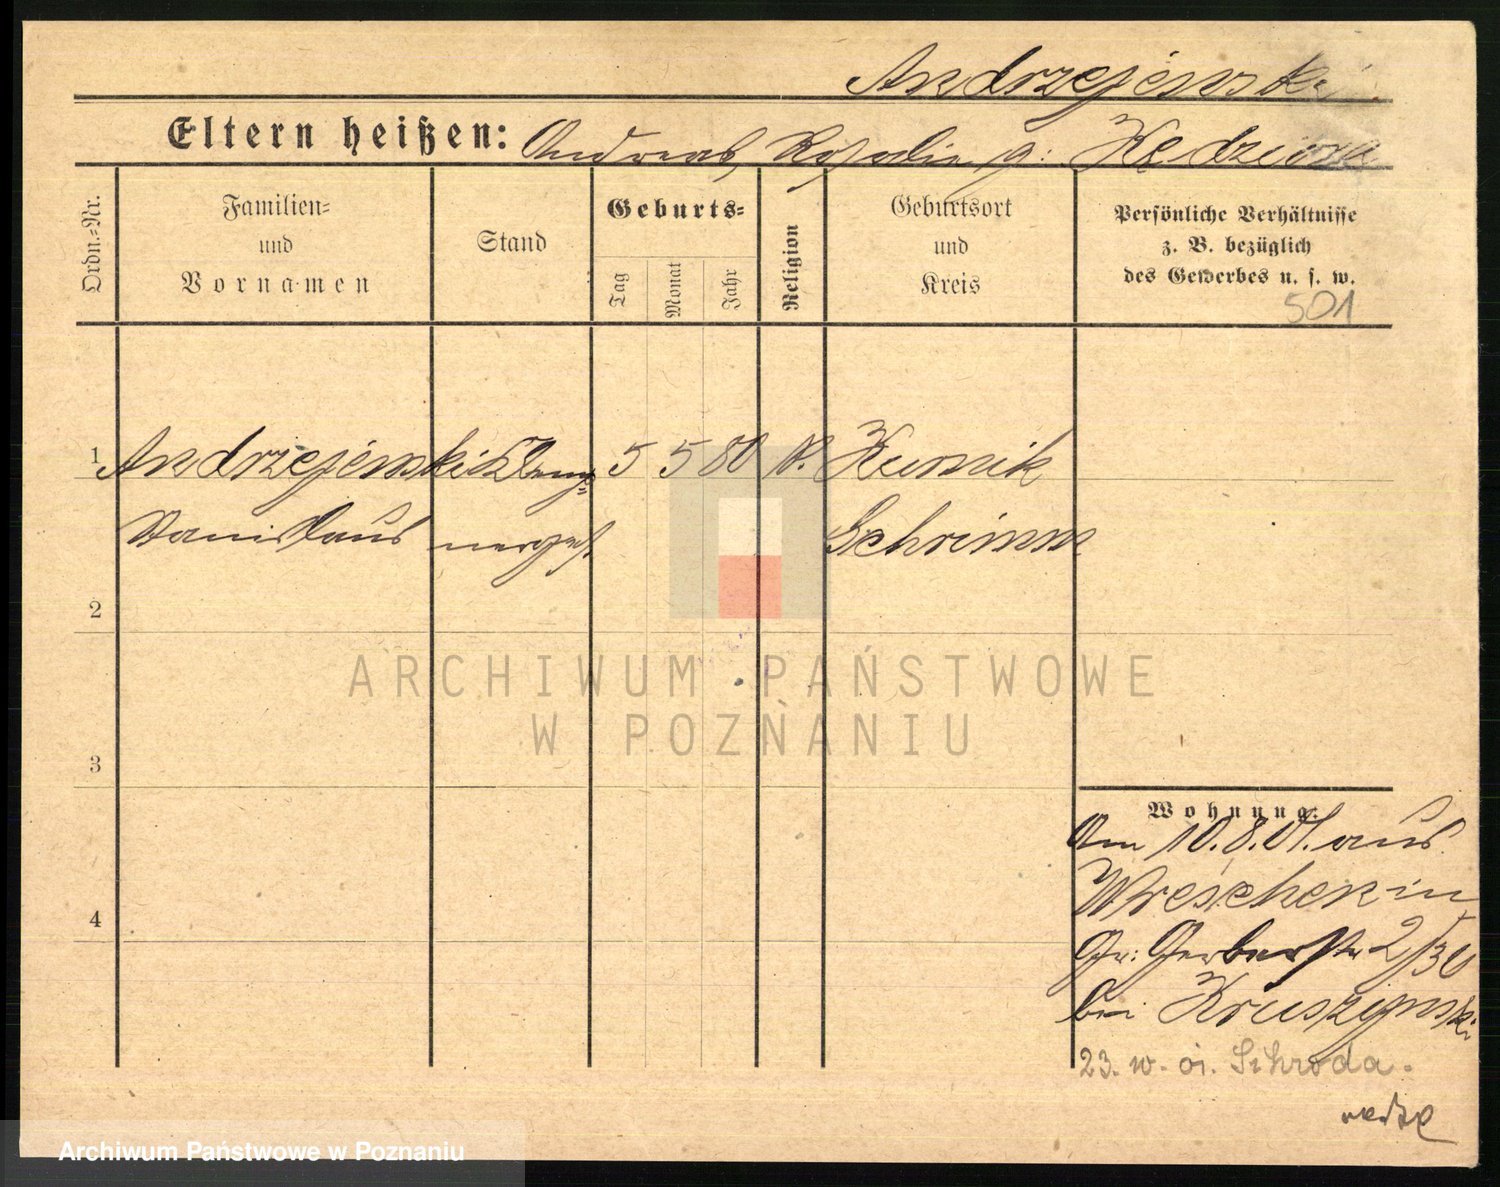 Andrzejewski
Eltern heißen: Andreas, Rosalie g:
Ordn.=Nr.
Familien=
und
Vornamen
Stand
Geburts=
Tag
Monat
Jahr
Religion
Geburtsort
und
Kreis
Persönliche Verhältnisse
z. B. bezüglich
des Gewerbes u. s. w.
501
1 Andrzejewski 5 5 80 Kurnik
Stanislaus Schrimm
2
3
4
Wohnung:
Am 10.8.01. aus
Wreschen in
Gr: Gerberstr 2/30
bei
23. Schroda.
ARCHIWUM PAŃSTWOWE
W POZNANIU
Archiwum Państwowe w Poznaniu